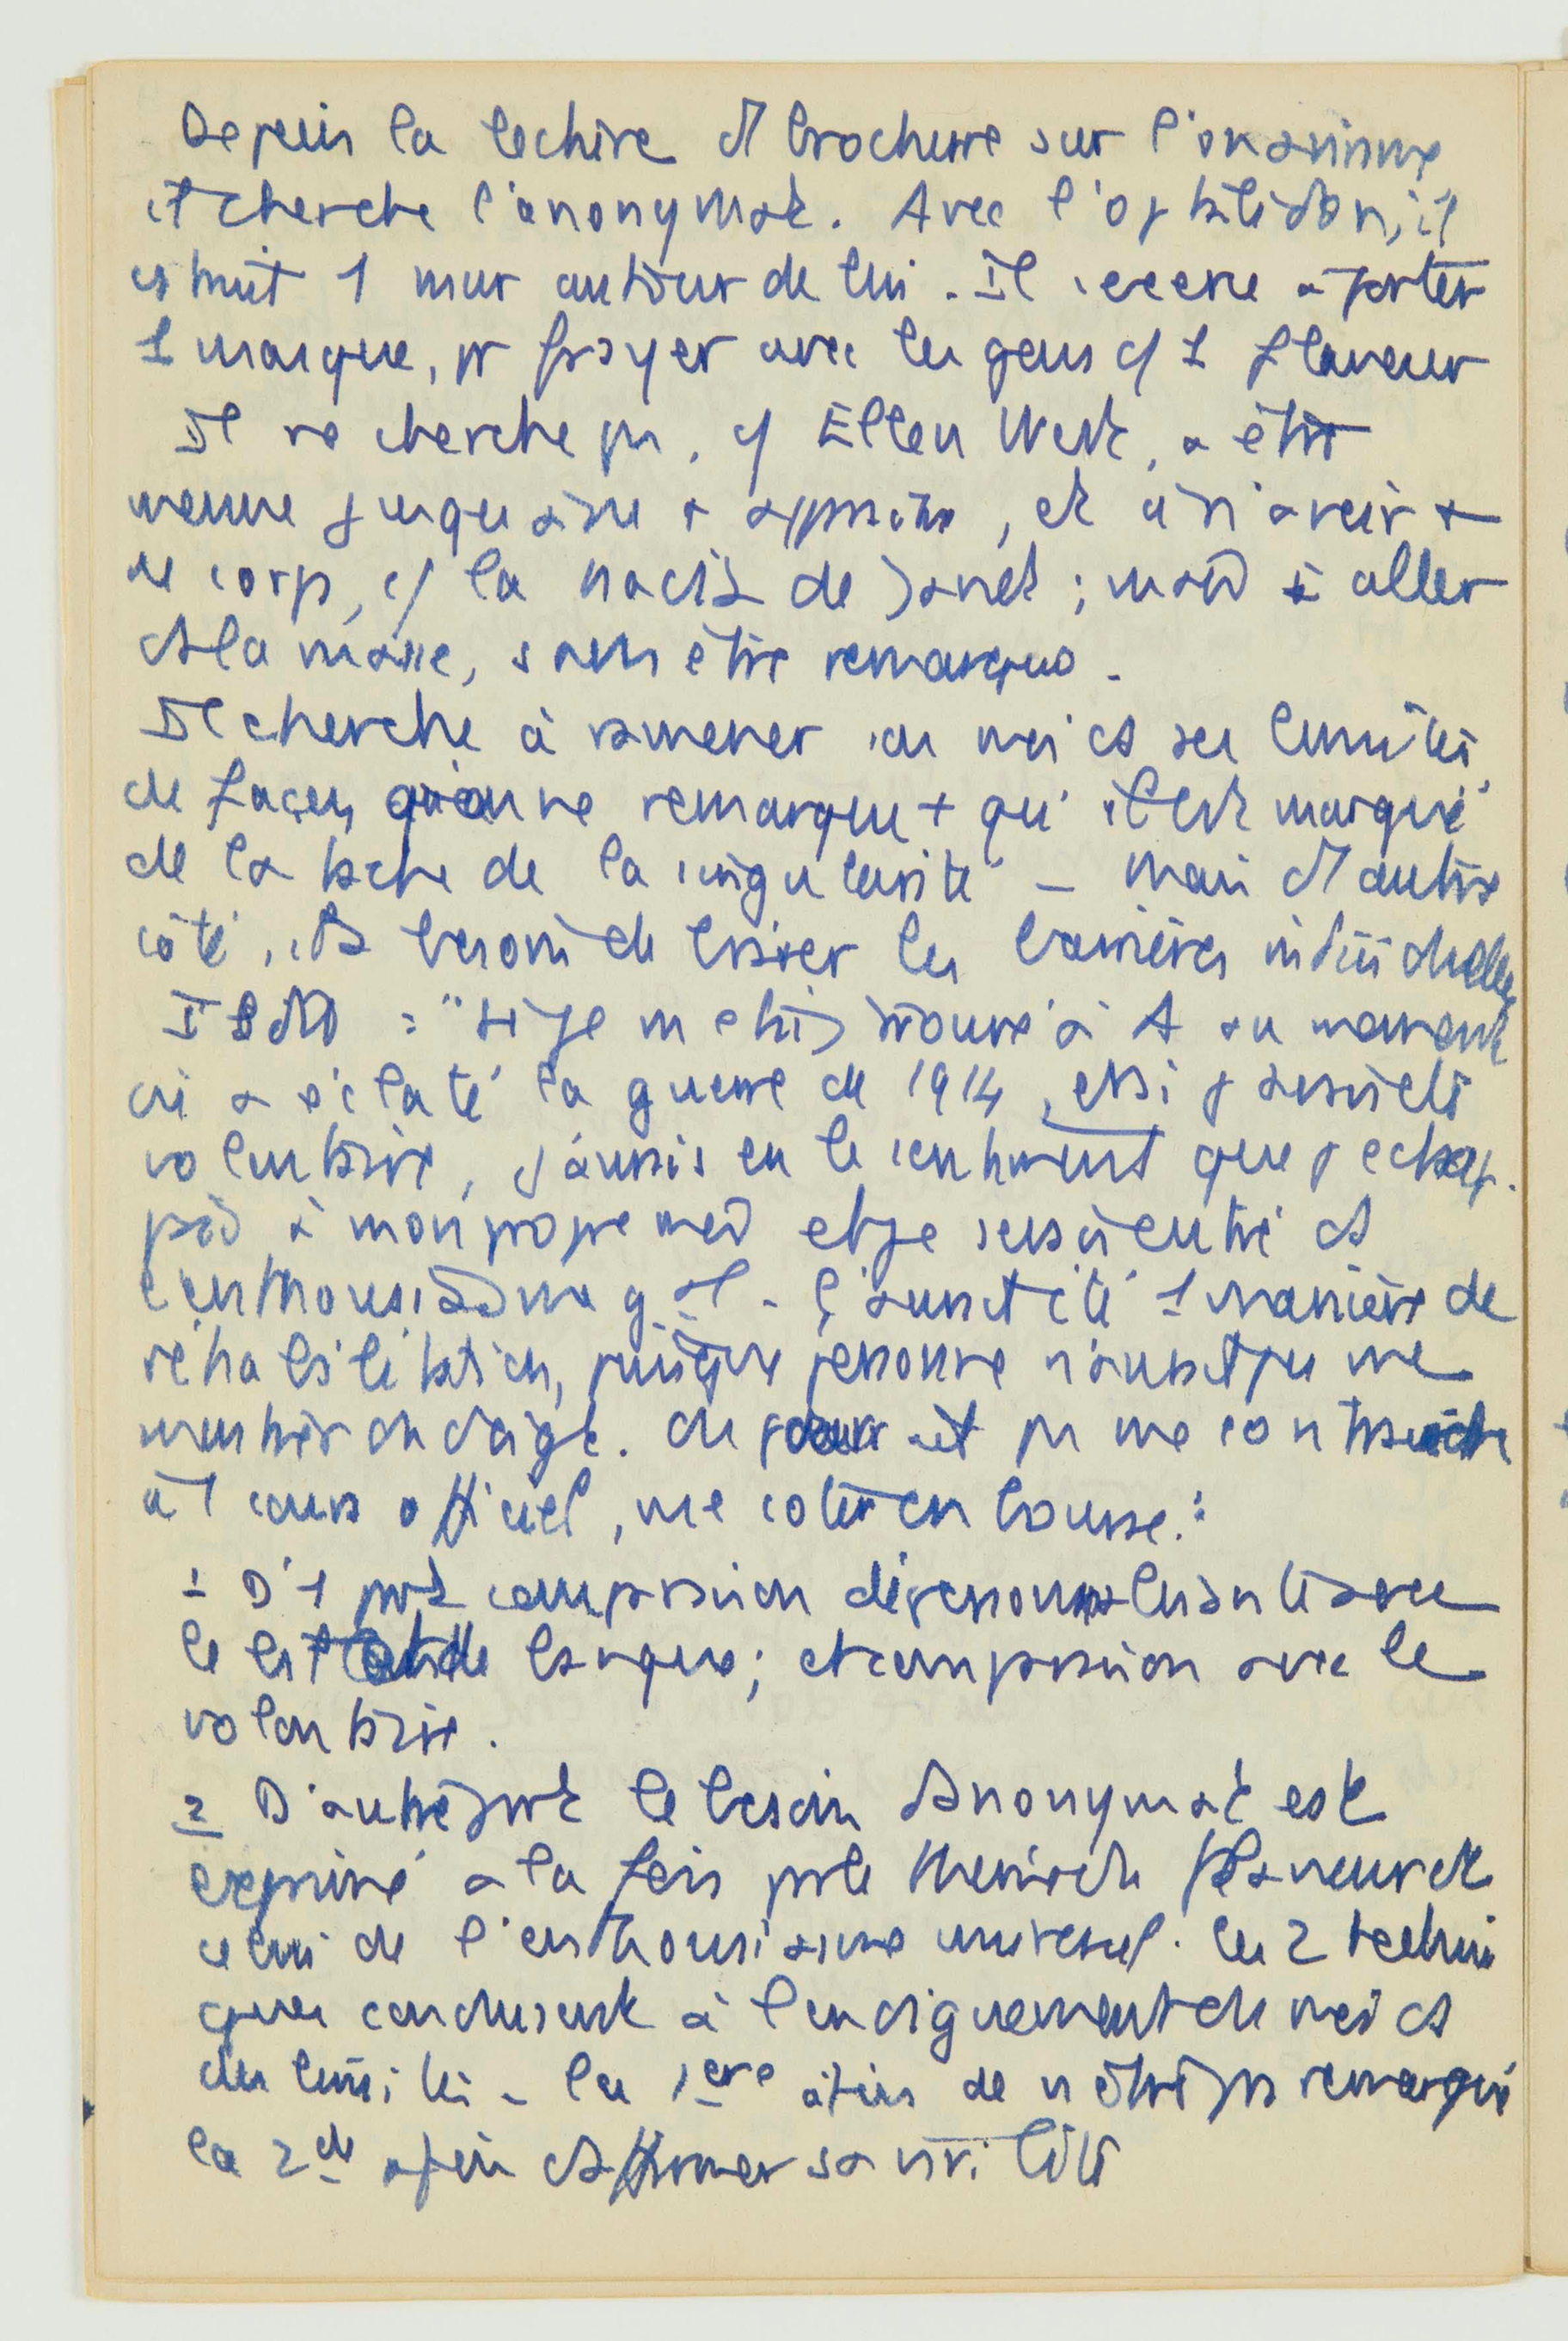 Depuis la lecture d1 brochure sur l'onanisme
il cherche l'anonymat. Avec l'optalidon, il
cstruit 1 mur autour de lui. Il cherche à porter
1 masque, pr frayer avec les gens c/ 1 flaneur
Il ne cherche pas, c/ Ellen West, à être
menue jusqu'à disparaître, et à n'avoir +
de corps, c/ la Nadia de Janet ; mais à aller
ds la masse, sans être remarqué.
Il cherche à ramener son moi ds ses limites,
de façon qu'on ne remarque + qu'il est marqué
de la tache de la singularité – Mais d'autre
côté, il a besoin de briser les barrières individuelles
Il dit : "Si je m'étais trouvé à A au moment
où a éclaté la guerre de 1914, et si j'avais été
volontaire, j'aurais eu le sentiment que j'échap-
pais à mon propre moi et je serais entré ds
l'enthousiasme g.al. Ç'aurait été 1 manière de
réhabilitation, puisque personne n'aurait pu me
montrer du doigt. On pourrait pu me contraindre
à 1 cours officiel, me coter en bourse."
1 D'1 part comparaison dépersonnalisante avec
le billet de banque ; et comparaison avec le
volontaire.
2 D'autre part le besoin d'anonymat est
exprimé à la fois par le thème du flaneur et
celui de l'enthousiasme universel. Les 2 techni
ques conduisent à l'endiguement du moi ds
des limites – la 1ère afin de n'être pas remarqué
la 2de afin d'affirmer sa virilité